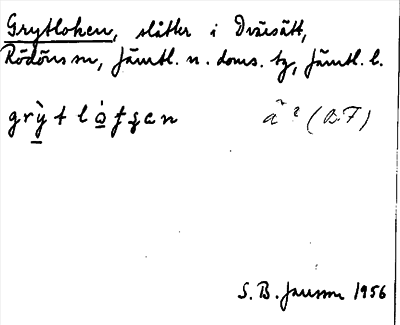 Grytloken, slåtter i Dvärsätt,
Rödöns sn, Jämtl. n. doms. tg, Jämtl. l.
grỳt l
S. B. Jansson 1956